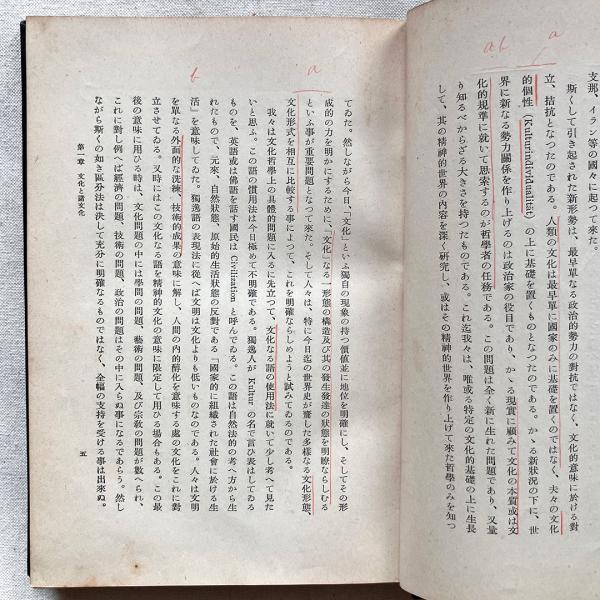 支那、イラン等の國々に起つて來た。
斯くして引き起された新形勢は、最早單なる政治的勢力の對抗ではなく、文化的意味に於ける對
立、拮抗となつたのである。人類の文化は最早單に國家のみに基礎を置くのではなく、夫々の文化
的個性 (Kulturindividualität) の上に基礎を置くものとなつたのである。かゝる新狀況の下に、世
界に新なる勢力關係を作り上げるのは政治家の役目であり、かゝる現實に顧みて文化の本質或は文
化的規準に就いて思索するのが哲學者の任務である。この問題は全く新に生れた問題であり、又量
り知るべからざる大きさを持つたものである。これ迄我々は、唯或る特定の文化的基礎の上に生長
して、其の精神的世界の内容を深く研究し、或はその精神的世界を作り上げて來た哲學のみを知つ
a
ab
てゐた。然しながら今日、「文化」といふ獨自の現象の持つ價値並に地位を明確にし、そしてその形
成的の力を明かにするために、「文化」なる一形態の構造及び其の發生發達の狀態を明瞭ならしむる
といふ事が重要問題となつて來た。そして人々は、特に今日迄の世界史が齎した多樣なる文化形態、
文化形式を相互に比較する事によつて、これを明確ならしめようと試みてゐるのである。
我々は文化哲學上の具體的問題に入るに先立つて、文化なる語の使用法に就いて少し考へて見た
いと思ふ。この語の慣用法は今日極めて不明確である。獨逸人が Kultur の名で言ひ表はしてゐる
ものを、英語或は佛語を話す國民は Civilization と呼んでゐる。この語は自然法的の考へ方から生
れたもので、元來、自然狀態、原始的生活狀態の反對である「國家的に組織された社會に於ける生
活」を意味してゐた。獨逸語の表現法に從へば文明は文化よりも低いものなのである。人々は文明
を單なる外面的な洗練、技術的成果の意味に解し、人間の內的醇化を意味する處の文化をこれに對
立させてゐる。又時にはこの文化なる語を精神的文化の意味に限定して用ひる場合もある。この最
後の意味に用ひる時は、文化問題の中には學問の問題、藝術の問題、及び宗敎の問題が數へられ、
これに對し例へば經濟の問題、技術の問題、政治の問題はその中に入らぬ事になるであらう。然し
ながら斯くの如き區分法は決して充分に明確なるものではなく、全幅の支持を受ける事は出來ぬ。
a
b
第一章 文化と諸文化
五